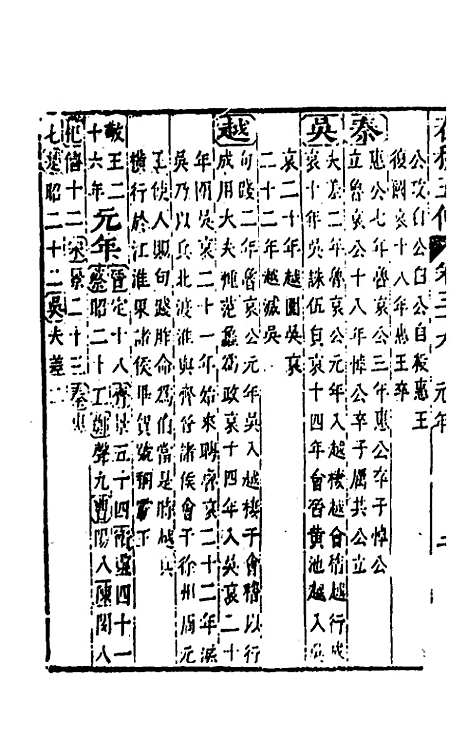 春秋五傳 第三十八 元年 二
公攻白公白公自殺惠王
復國哀十八年惠王卒
秦
惠公七年魯哀公三年惠公卒子悼公
立魯哀公十八年悼公卒子厲共公立
吳
夫差二年魯哀公元年入越棲越會稽越行成
哀十年吳誅伍員哀十四年會晉黃池越入吳
哀二十年越圍吳哀
二十二年越滅吳
越
句踐二年魯哀公元年吳入越棲于會稽以行
成用大夫種范蠡為政哀十四年入吳哀二十
年圍吳哀二十一年始來聘魯哀二十二年滅
吳乃以兵北渡淮與齊晉諸侯會于徐州周元
王使人賜句踐胙命為伯當是時越兵
橫行於江淮東諸侯畢賀號稱霸王
敬王二十六年
元年
晉定十八齊景五十四衛靈四十一
蔡昭二十五鄭聲九曹陽八陳閔八
杞僖十二宋景二十三秦惠
七楚昭二十二吳夫差二